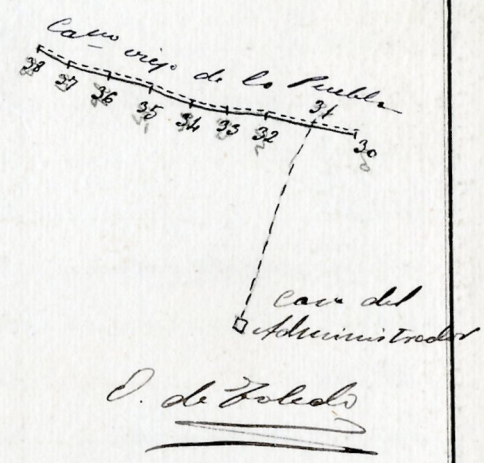 Camo viejo de la Puebla
38 37 36 35 34 33 32 31 30
Casa del
Administrador
O. de Toledo